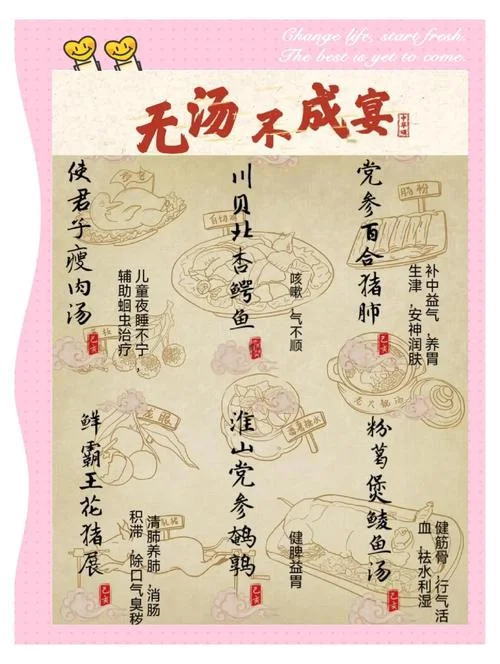 Change life, start fresh.
The best is yet to come.
无汤不成宴
中华味
党参百合猪肺
补中益气,养胃
生津,安神润肤
川贝北杏鳄鱼
咳嗽,气不顺
使君子瘦肉汤
儿童夜睡不宁,
辅助蛔虫治疗
粉葛煲鲮鱼汤
健筋骨,行气活
血 祛水利湿
淮山党参鹌鹑
健脾益胃
鲜霸王花猪展
清肺养肺,消肠
积滞,除口气臭秽
肠粉
白切鸡
老火靓汤
乳猪
己亥
己亥
己亥
己亥
己亥